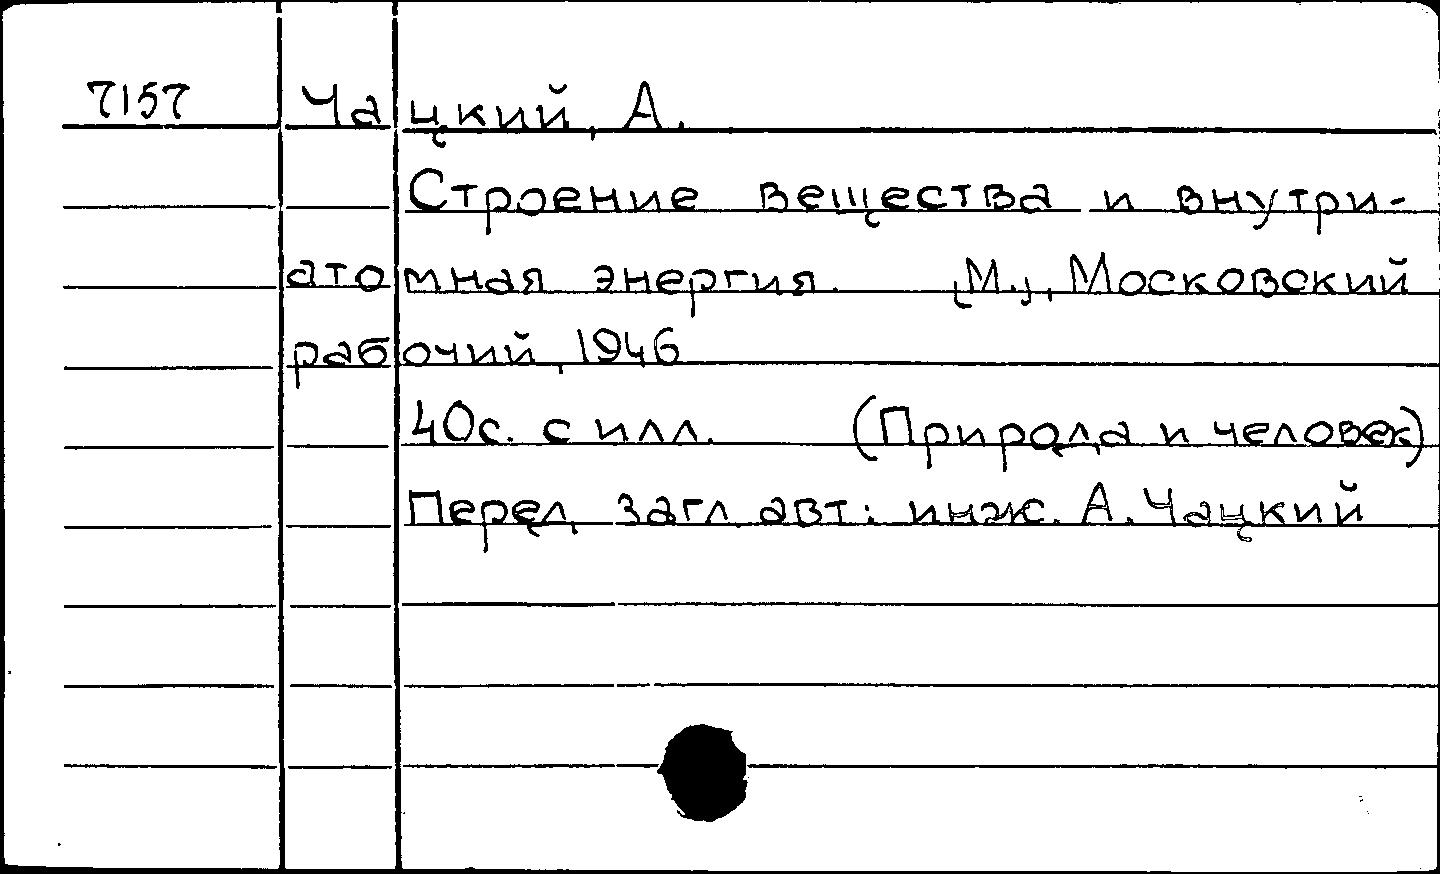 7157 Чацкий, А.
Строение вещества и внутри-
атомная энергия. [М.], Московский
рабочий, 1946
40с. с илл. (Природа и человек)
Перед загл. авт: инж. А. Чацкий